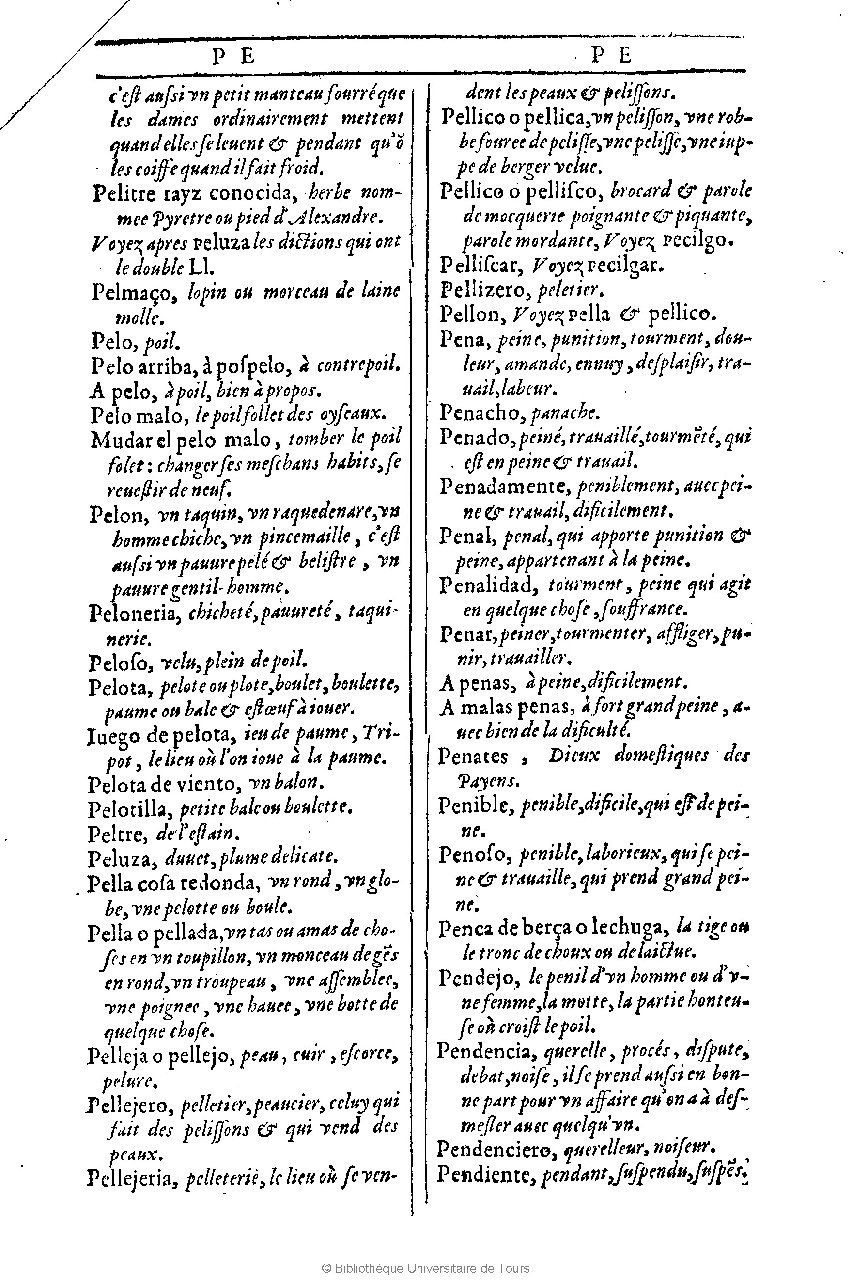 P E
c'eſt auſsi vn petit manteau fourré que
les dames ordinairement mettent
quand elles ſe leuent & pendant qu'õ
les coiffe quand il fait froid.
Pelitre rayz conocida, herbe nom-
mee Pyretre ou pied d'Alexandre.
Voyez apres peluza les dictions qui ont
le double Ll.
Pelmaço, lopin ou morceau de laine
molle.
Pelo, poil.
Pelo arriba, à poſpelo, à contrepoil.
A pelo, à poil, bien à propos.
Pelo malo, le poil follet des oyſeaux.
Mudar el pelo malo, tomber le poil
folet: changer ſes meſchans habits, ſe
reueſtir de neuf.
Pelon, vn taquin, vn raquedenare, vn
homme chiche, vn pincemaille, c'eſt
auſsi vn pauure pelé & beliſtre, vn
pauure gentil-homme.
Peloneria, chicheté, pauureté, taqui-
nerie.
Peloſo, velu, plein de poil.
Pelota, pelote ou plote, boulet, boulette,
paume ou bale & eſtœuf à iouer.
Iuego de pelota, ieu de paume, Tri-
pot, le lieu où l'on ioue à la paume.
Pelota de viento, vn balon.
Pelotilla, petite bale ou boulette.
Peltre, de l'eſtain.
Peluza, duuet, plume delicate.
Pella coſa redonda, vn rond, vn glo-
be, vne pelotte ou boule.
Pella o pellada, vn tas ou amas de cho-
ſes en vn toupillon, vn monceau de gẽs
en rond, vn troupeau, vne aſſemblee,
vne poignee, vne hauee, vne botte de
quelque choſe.
Pelleja o pellejo, peau, cuir, eſcorce,
pelure.
Pellejero, pelletier, peaucier, celuy qui
fait des peliſſons & qui vend des
peaux.
Pellejeria, pelleterie, le lieu où ſe ven-
P E
dent les peaux & peliſſons.
Pellico o pellica, vn peliſſon, vne rob-
be fouree de peliſſe, vne peliſſe, vne iup-
pe de berger velue.
Pellico o pelliſco, brocard & parole
de mocquerie poignante & piquante,
parole mordante, Voyez pecilgo.
Pelliſcar, Voyez pecilgar.
Pellizero, peletier.
Pellon, Voyez pella & pellico.
Pena, peine, punition, tourment, dou-
leur, amande, ennuy, deſplaiſir, tra-
uail, labeur.
Penacho, panache.
Penado, peiné, trauaillé, tourmẽté, qui
eſt en peine & trauail.
Penadamente, peniblement, auec pei-
ne & trauail, dificilement.
Penal, penal, qui apporte punition &
peine, appartenant à la peine.
Penalidad, tourment, peine qui agit
en quelque choſe, ſouffrance.
Penar, peiner, tourmenter, affliger, pu-
nir, trauailler.
A penas, à peine, dificilement.
A malas penas, à fort grand peine, a-
uec bien de la dificulté.
Penates, Dieux domeſtiques des
Payens.
Penible, penible, dificile, qui eſt de pei-
ne.
Penoſo, penible, laborieux, qui ſe pei-
ne & trauaille, qui prend grand pei-
ne.
Penca de berça o lechuga, la tige ou
le tronc de choux ou de laictue.
Pendejo, le penil d'vn homme ou d'v-
ne femme, la motte, la partie honteu-
ſe où croiſt le poil.
Pendencia, querelle, procés, diſpute,
debat, noiſe, il ſe prend auſsi en bon-
ne part pour vn affaire qu'on a à deſ-
meſler auec quelqu'vn.
Pendenciero, querelleur, noiſeur.
Pendiente, pendant, ſuſpendu, ſuſpẽs.
© Bibliothèque Universitaire de Tours